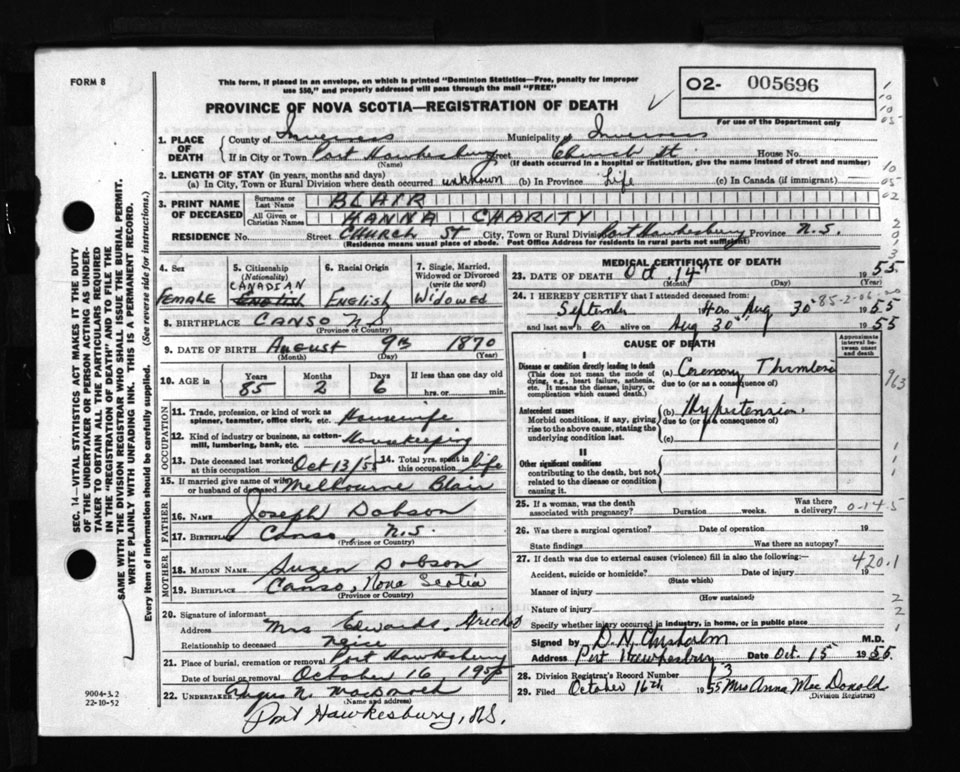 FORM 8
This form, if placed in an envelope, on which is printed "Dominion Statistics—Free, penalty for improper
use $50," and properly addressed will pass through the mail "FREE"
PROVINCE OF NOVA SCOTIA—REGISTRATION OF DEATH
O2- 005696
For use of the Department only
1. PLACE OF DEATH County of Inverness Municipality of Inverness
If in City or Town Port Hawkesbury Street Church St. House No.
(Name) (If death occurred in a hospital or institution, give the name instead of street and number)
2. LENGTH OF STAY (in years, months and days)
(a) In City, Town or Rural Division where death occurred unknown (b) In Province Life (c) In Canada (if immigrant) —
3. PRINT NAME OF DECEASED Surname or Last Name BLAIR
All Given or Christian Names HANNA CHARITY
RESIDENCE No. Street CHURCH ST City, Town or Rural Division Port Hawkesbury Province N.S.
(Residence means usual place of abode. Post Office Address for residents in rural parts not sufficient)
4. Sex FEMALE
5. Citizenship (Nationality) CANADIAN English
6. Racial Origin ENGLISH
7. Single, Married, Widowed or Divorced (write the word) WIDOWED
8. BIRTHPLACE CANSO N S
(Province or Country)
9. DATE OF BIRTH August 9th 1870
(Month) (Day) (Year)
10. AGE in Years 85 Months 2 Days 6 If less than one day old hrs. or min.
OCCUPATION
11. Trade, profession, or kind of work as spinner, teamster, office clerk, etc. Housewife
12. Kind of industry or business, as cotton-mill, lumbering, bank, etc. Housekeeping
13. Date deceased last worked at this occupation Oct 13/55 14. Total yrs. spent in this occupation life
15. If married give name of wife or husband of deceased Melbourne Blair
FATHER
16. NAME Joseph Dobson
17. BIRTHPLACE Canso N.S.
(Province or Country)
MOTHER
18. MAIDEN NAME Suzen Dobson
19. BIRTHPLACE Canso, Nova Scotia
(Province or Country)
20. Signature of informant
Address Mrs Edwards, Arichat
Relationship to deceased Neice
21. Place of burial, cremation or removal Port Hawkesbury
Date of burial or removal October 16, 1955
22. UNDERTAKER N.
(Name and address)
Port Hawkesbury, N.S.
MEDICAL CERTIFICATE OF DEATH
23. DATE OF DEATH Oct. 14 1955
(Month) (Day) (Year)
24. I HEREBY CERTIFY that I attended deceased from:
September to Aug 30 1955
and last saw her alive on Aug 30 1955
CAUSE OF DEATH
Approximate interval between onset and death
I
Disease or condition directly leading to death
(This does not mean the mode of dying, e.g., heart failure, asthenia, etc. It means the disease, injury, or complication which caused death.)
(a) Coronary Thrombosis
due to (or as a consequence of)
Antecedent causes
Morbid conditions, if any, giving rise to the above cause, stating the underlying condition last.
(b) Hypertension
due to (or as a consequence of)
(c)
II
Other significant conditions
contributing to the death, but not related to the disease or condition causing it.
25. If a woman, was the death associated with pregnancy? Duration weeks. Was there a delivery?
26. Was there a surgical operation? Date of operation 19
State findings Was there an autopsy?
27. If death was due to external causes (violence) fill in also the following:— 420.1
Accident, suicide or homicide? Date of injury 19
(State which)
Manner of injury
(How sustained)
Nature of injury
Specify whether injury occurred in industry, in home, or in public place
Signed by D. N. Chisholm M.D.
Address Port Hawkesbury Date Oct. 15 1955
28. Division Registrar's Record Number 13
29. Filed October 16th 1955 Mrs Anna Mac Donald
(Division Registrar)
SEC. 14—VITAL STATISTICS ACT MAKES IT THE DUTY
OF THE UNDERTAKER OR PERSON ACTING AS UNDERTAKER
TO OBTAIN ALL THE PARTICULARS REQUIRED
IN THE "REGISTRATION OF DEATH" AND TO FILE THE
SAME WITH THE DIVISION REGISTRAR WHO SHALL ISSUE THE BURIAL PERMIT.
WRITE PLAINLY WITH UNFADING INK. THIS IS A PERMANENT RECORD.
Every item of information should be carefully supplied. (See reverse side for instructions.)
9004-3.2
22-10-52